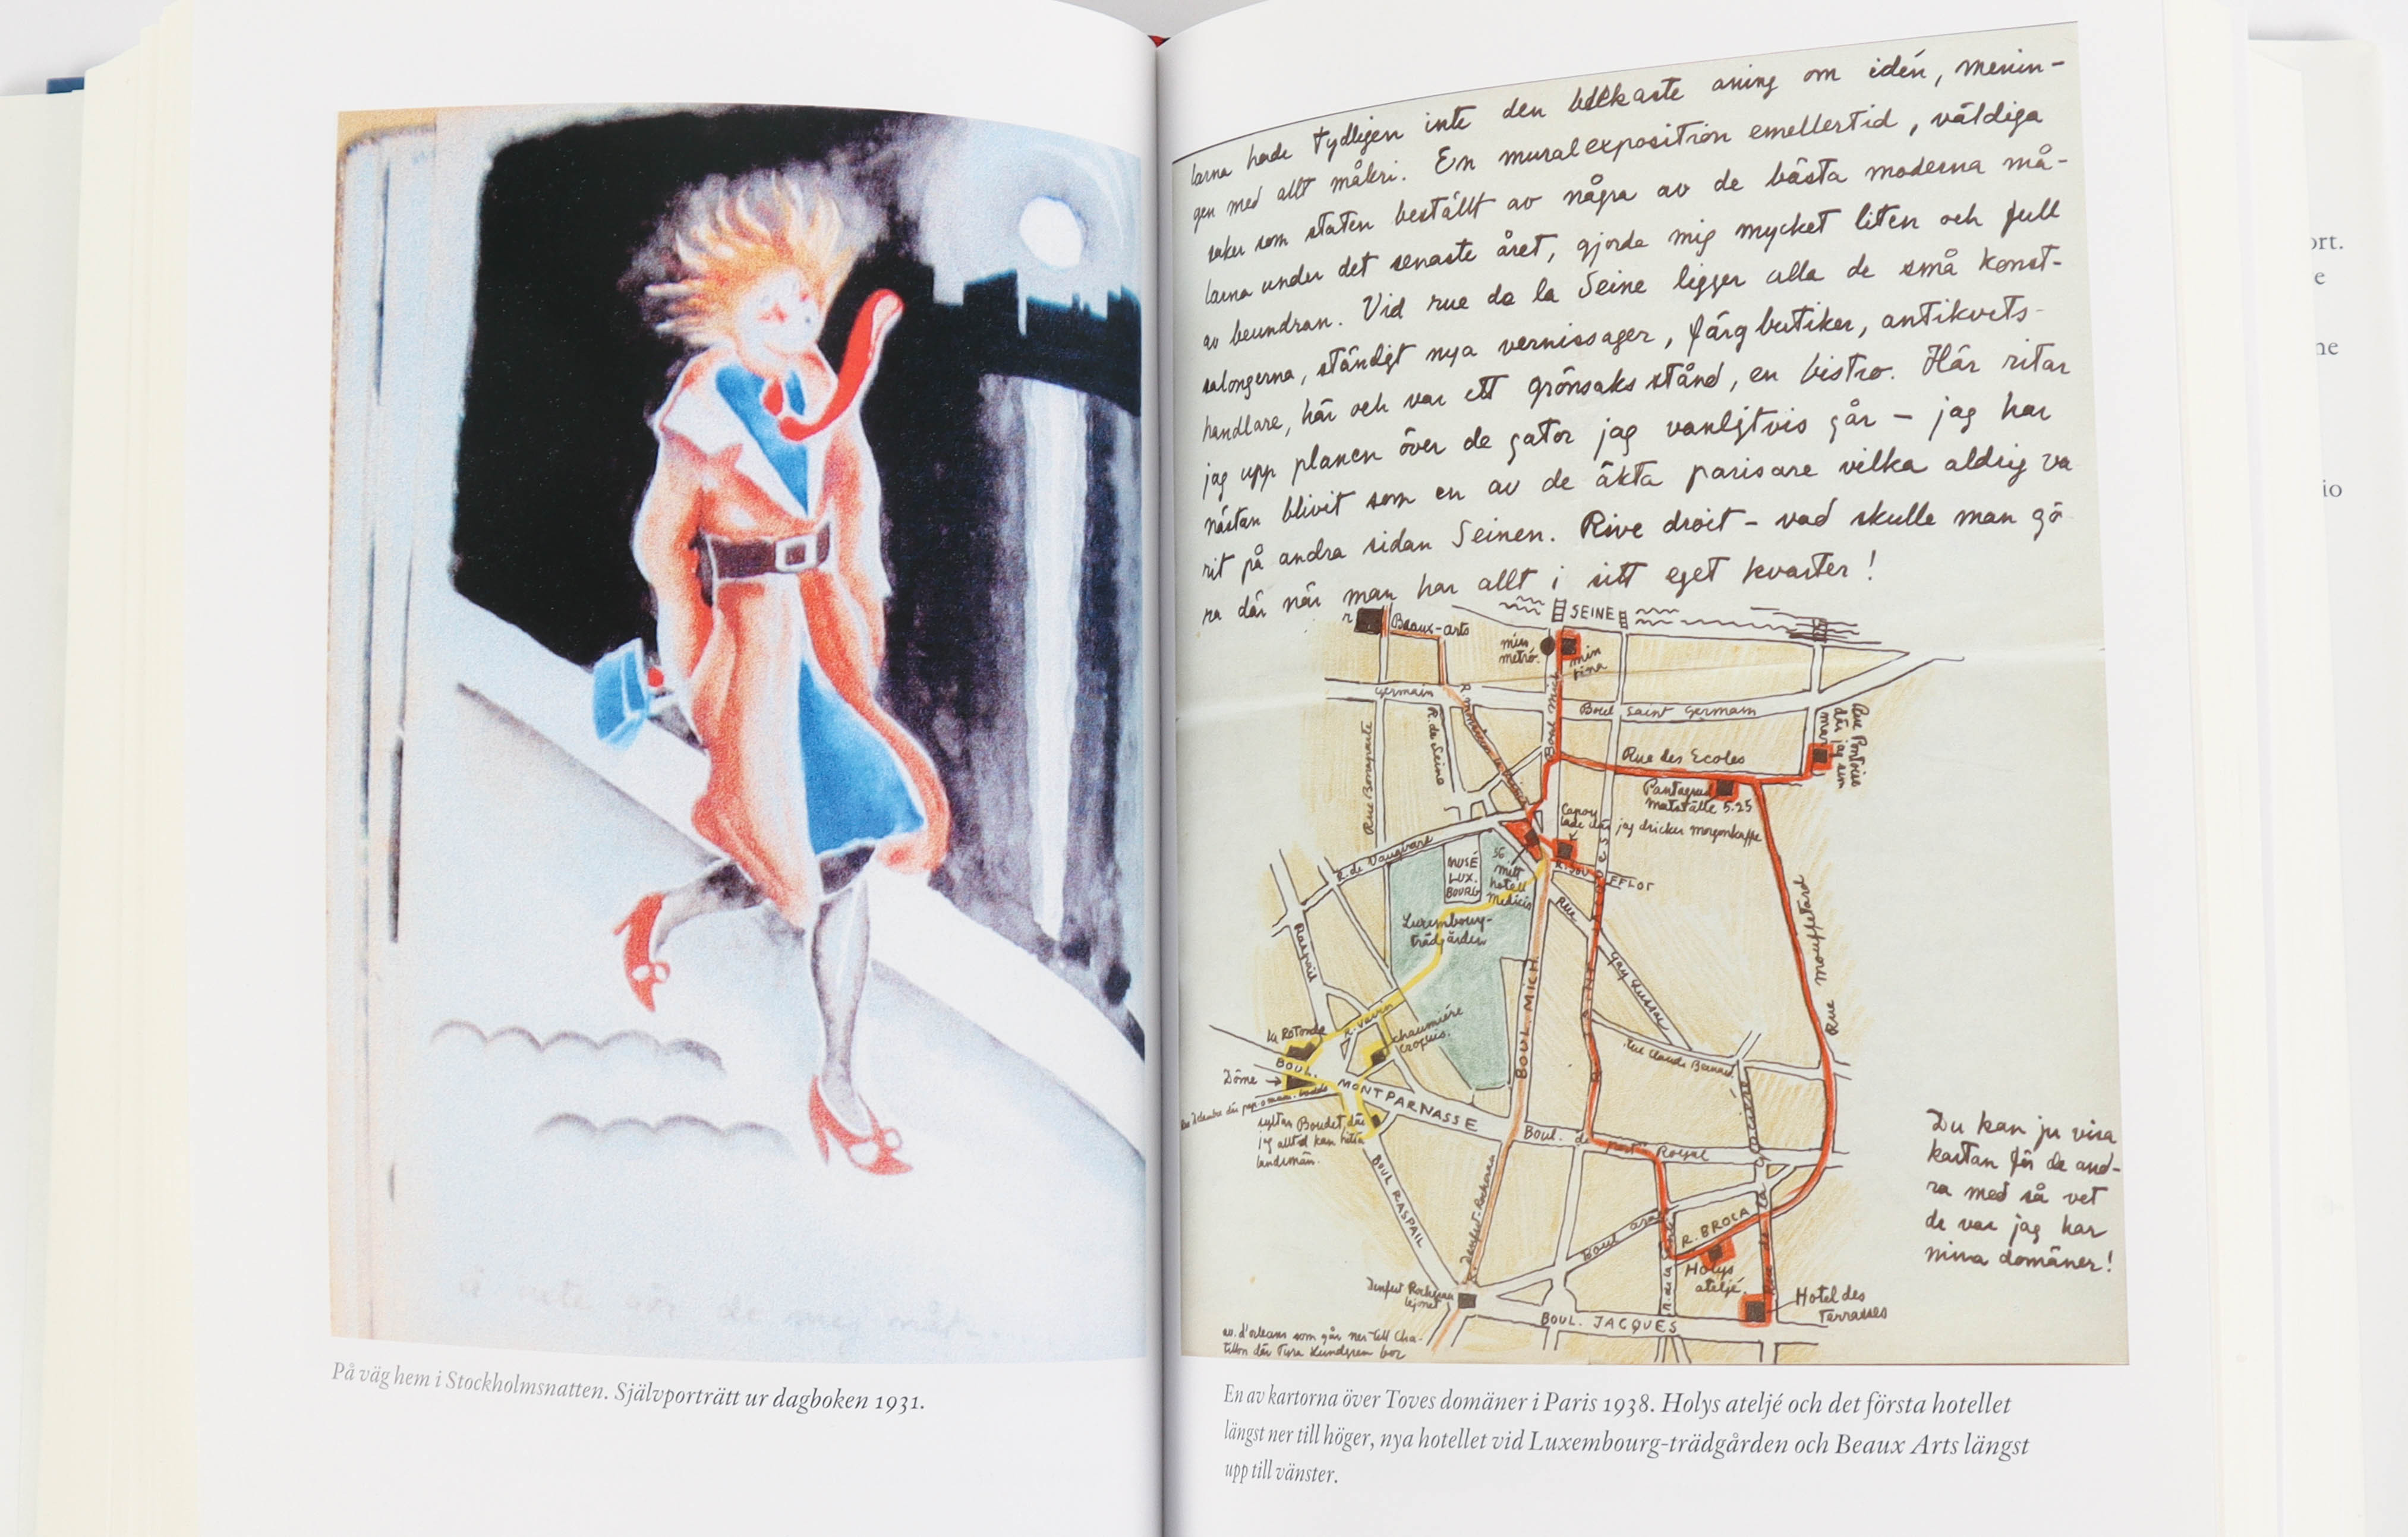 På väg hem i Stockholmsnatten. Självporträtt ur dagboken 1931.
larna hade tydligen inte den blekaste aning om idén, menin-
gen med allt måleri. En muralexposition emellertid, väldiga
saker som staten beställt av några av de bästa moderna må-
larna under det senaste året, gjorde mig mycket liten och full
av beundran. Vid rue de la Seine ligger alla de små konst-
salongerna, ständigt nya vernissager, färgbutiker, antikvets-
handlare, här och var ett grönsaksstånd, en bistro. Här ritar
jag upp planen över de gator jag vanligtvis går – jag har
nästan blivit som en av de äkta parisare vilka aldrig va
rit på andra sidan Seinen. Rive droit – vad skulle man gö
ra där när man har allt i sitt eget kvarter!
SEINE
Beaux-arts
min
metró.
Germain
R. de Seine
Boul Mich
Boul Saint Germain
Rue Bonaparte
Rue des Ecoles
Rue Pontoise
där jag
matställe 5.25
jag dricker morgonkaffe
R. de Vaugirard
MUSÉ
LUX.
BOURG
56
mitt
hotell
Medicis
Luxembourg-
trädgården
Raspail
BOUL. MICH.
Rue
Gay Lussac
Rue Mouffetard
La Rotonde
R. Vavin
chaumiére
croquis.
Dôme →
BOUL. MONTPARNASSE
Boudet, där
landsmän.
Rue Claude Bernard
Boul. de Port Royal
BOUL RASPAIL
R. Denfert-Rochereau
Boul Arago
R. BROCA
Holys
ateljé.
Hotel des
Terrasses
Denfert Rochereau
lejonet
BOUL. JACQUES
av. d'orleans som går ner till Cha-
tillon där Tyra Lundgren bor
Du kan ju visa
kartan för de and-
ra med så vet
de var jag har
mina domäner!
En av kartorna över Toves domäner i Paris 1938. Holys ateljé och det första hotellet
längst ner till höger, nya hotellet vid Luxembourg-trädgården och Beaux Arts längst
upp till vänster.
ort.
e
ne
io